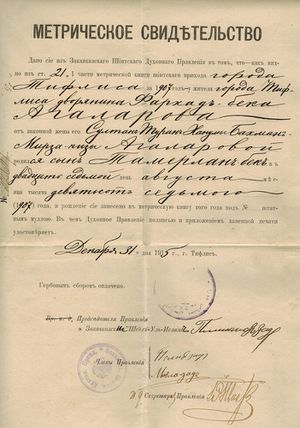 МЕТРИЧЕСКОЕ СВИДѢТЕЛЬСТВО
Дано сіе изъ Закавказскаго Шіитскаго Духовнаго Правленія въ томъ, что—какъ вид-
но изъ ст. 21. I части метрической книги шіитскаго прихода города
Тифлиса за 1907 годъ—у жителя города Тиф-
лиса дворянина Фархадъ-бека
Агаларова
отъ законной жены его Султанъ Туранъ Ханумъ Бахманъ-
Мирза-кизы Агаларовой
родился сынъ Тамерланъ-бекъ
двадцать седьмой день августа мѣсяца
тысяча девятьсот седьмого
(1907) года, и рожденіе сіе занесено въ метрическую книгу того года подъ № штат-
нымъ муллою. Въ чемъ Духовное Правленіе подписью и приложеніемъ казенной печати
удостовѣряетъ.
Декабря 31 дня 1915 г., г. Тифлисъ.
Гербовымъ сборомъ оплачено.
Предсѣдателя Правленія
Закавказскій Шейхъ-Уль-Исламъ
Члены Правленія
Секретарь Правленія